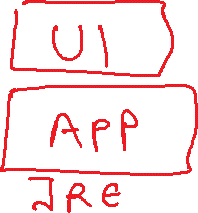 UI
APP
JRE